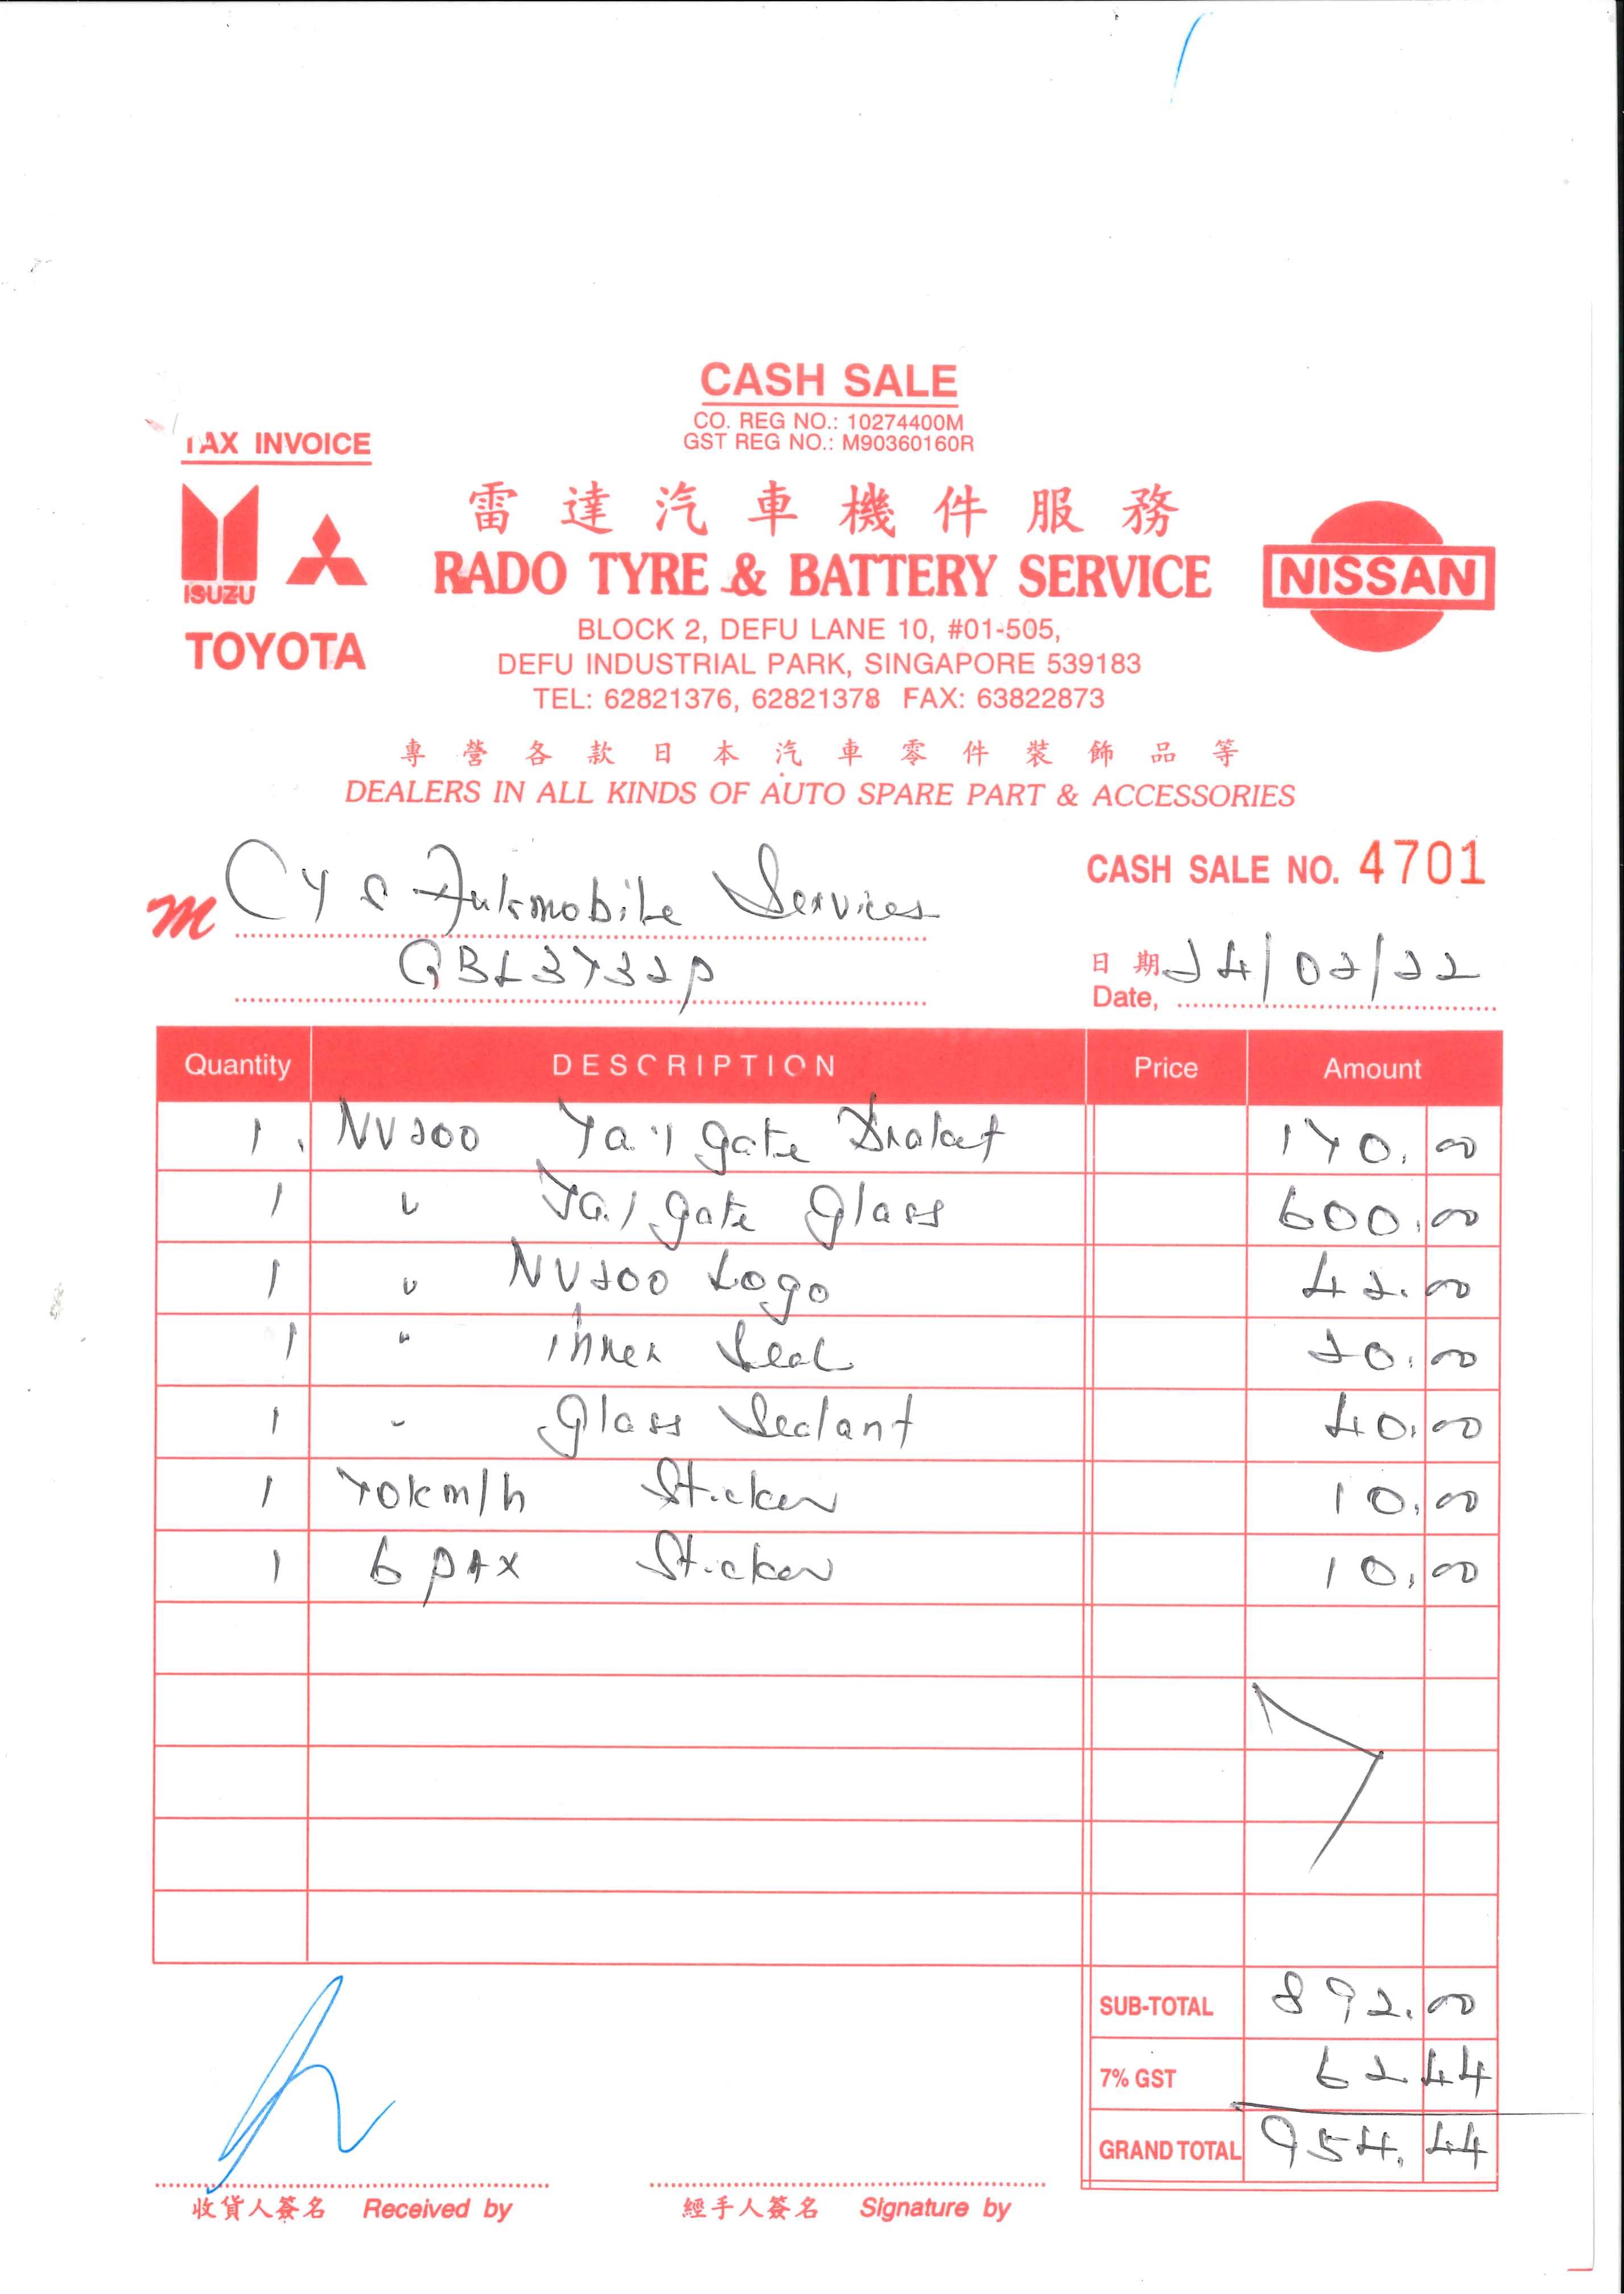 CASH SALE
CO. REG NO.: 10274400M
GST REG NO.: M90360160R
TAX INVOICE
雷達汽車機件服務
RADO TYRE & BATTERY SERVICE
ISUZU
TOYOTA
NISSAN
BLOCK 2, DEFU LANE 10, #01-505,
DEFU INDUSTRIAL PARK, SINGAPORE 539183
TEL: 62821376, 62821378 FAX: 63822873
專營各款日本汽車零件裝飾品等
DEALERS IN ALL KINDS OF AUTO SPARE PART & ACCESSORIES
CASH SALE NO. 4701
M Cy & Automobile Services
GBL3732P
日期 24/02/22
Date,
Quantity DESCRIPTION Price Amount
1 NV200 Tailgate 170.00
1 " Tailgate Glass 600.00
1 " NV200 Logo 42.00
1 " inner Seal 20.00
1 " Glass Sealant 40.00
1 70km/h Sticker 10.00
1 6 pax Sticker 10.00
SUB-TOTAL 892.00
7% GST 62.44
GRAND TOTAL 954.44
收貨人簽名 Received by
經手人簽名 Signature by